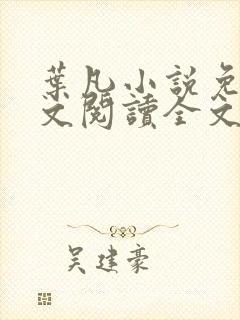 葉凡小說免
文閱讀全文
吴建豪